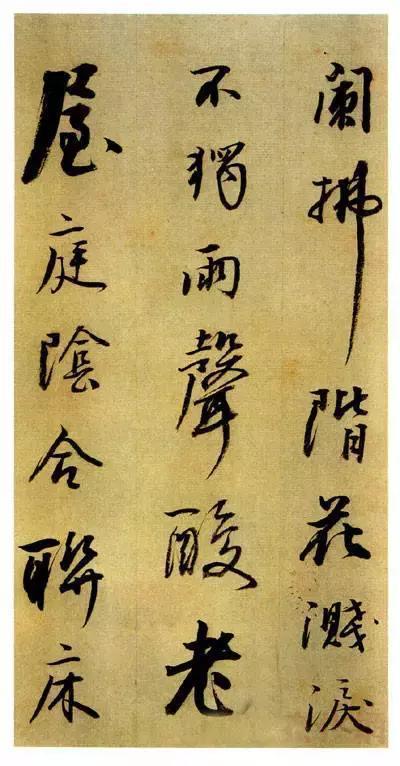 闌拂階花濺淚
不獨雨聲酸老
屋庭陰合聯床